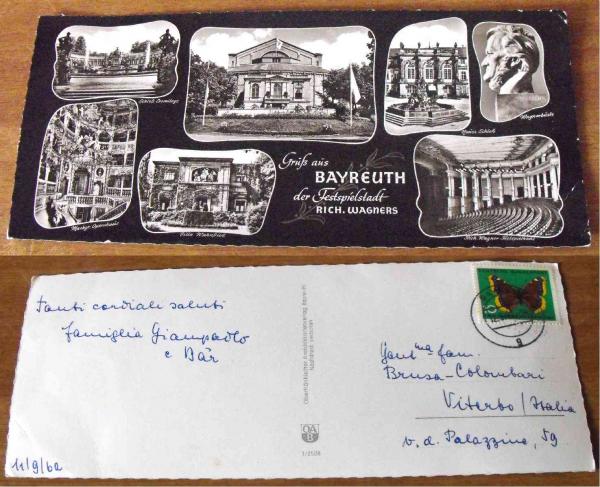 Schloß Eremitage
Neues Schloß
Wagnerbüste
Markgr. Opernhaus
Villa Wahnfried
Rich. Wagner-Festspielhaus
Grüß aus
BAYREUTH
der Festspielstadt
RICH. WAGNERS
Tanti cordiali saluti
famiglia Giampaolo
e Bär
11/9/62
Oberfränkischer Ansichtskartenverlag Bayreuth
Nachdruck verboten
OAB
Gent.ma fam.
Brusa-Colombari
Viterbo/Italia
v. d. Palazzina, 59